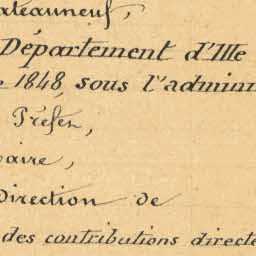 ateauneuf,
Département d'Ille
1848, sous l'admini
Préfet,
aire,
Direction de
des contributions directe